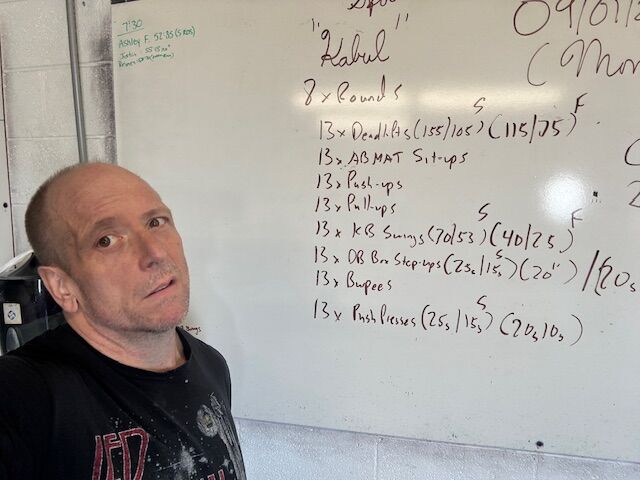 7:30
Ashley F. 52:85 (5 RDS)
"Kabul"
8 x Rounds
13 x Deadlifts (155/105)S (115/75)F
13 x ABMAT Sit-ups
13 x Push-ups
13 x Pull-ups
13 x KB Swings (70/53)S (40/25)F
13 x DB Box Step-ups (25s/15s)S (20") / (20s
13 x Bupees
13 x Push Presses (25s/15s)S (20s 10s)
09/01/
(Mon
LED